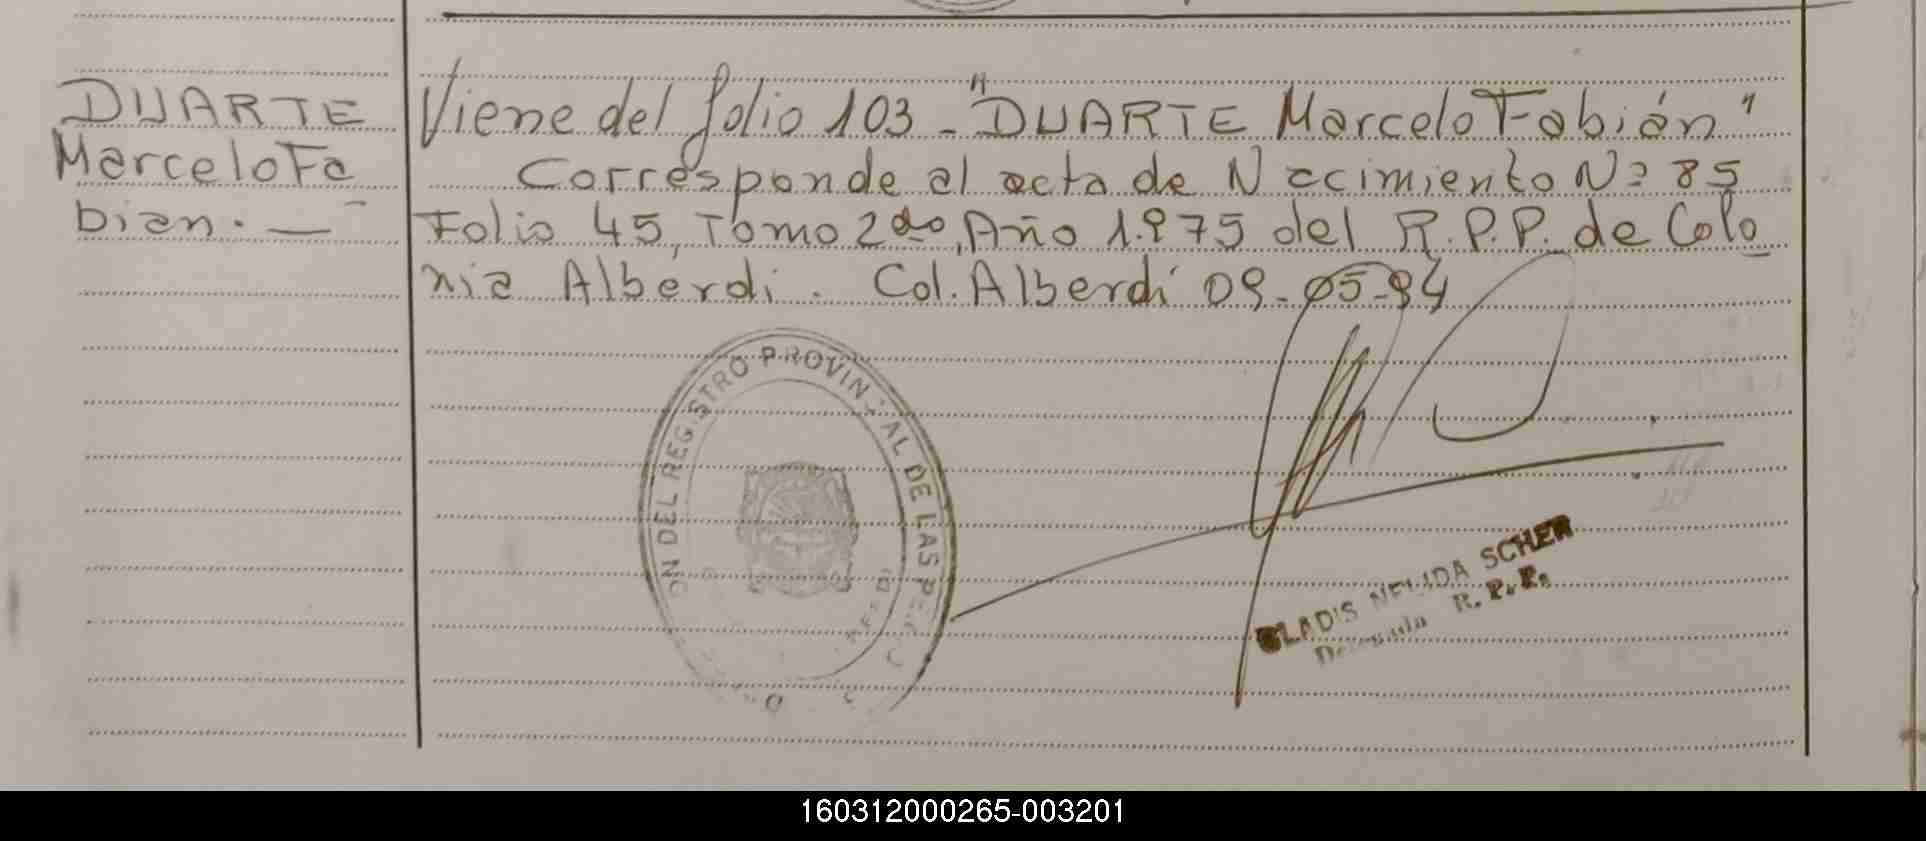 DUARTE
Marcelo Fa
bian. —
Viene del folio 103 - "DUARTE Marcelo Fabián"
Corresponde al acta de Nacimiento Nº 85
Folio 45, Tomo 2do, Año 1.975 del R.P.P. de Colo
nia Alberdi. Col. Alberdi 09-05-94
ON DEL REGISTRO PROVIN AL DE LAS PE
GLADIS NELIDA SCHER
Delegada R. P. P.
160312000265-003201